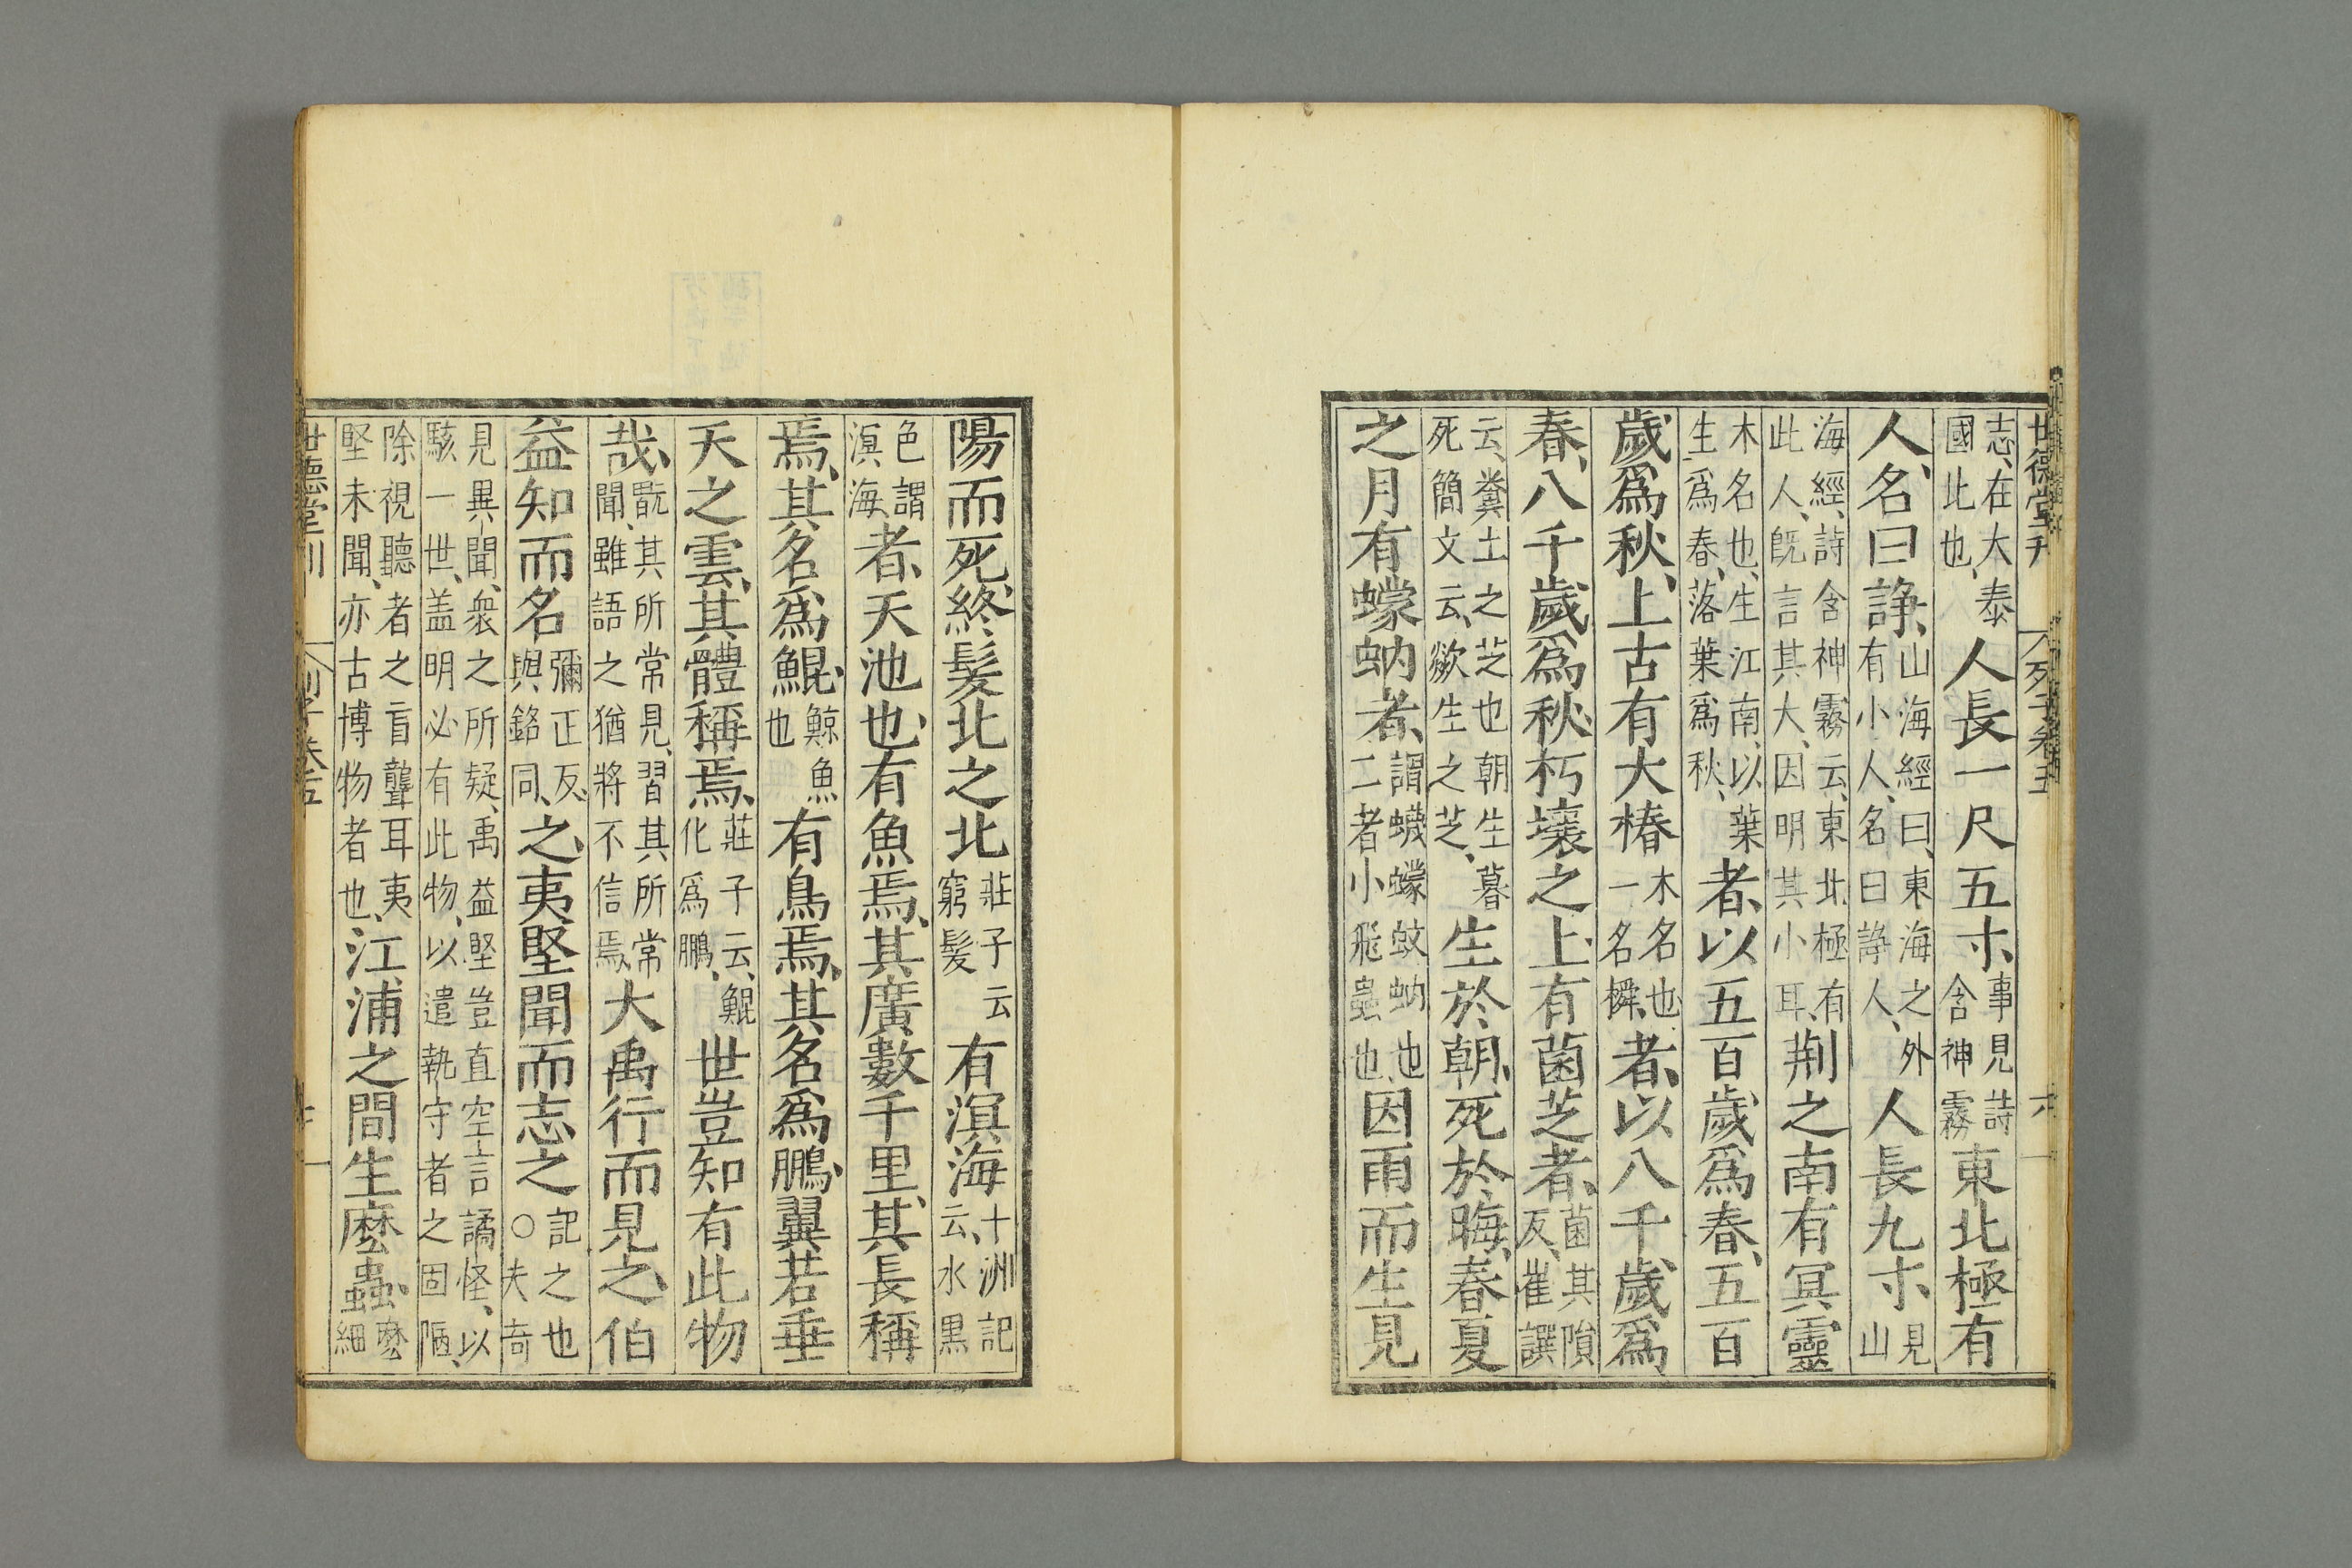 世德堂刊 列子卷五 六
志、在大泰國北也、人長一尺五寸、事見詩含神霧東北極有
人、名曰諍、山海經曰、東海之外有小人、名曰諍人、人長九寸見山
海經、詩含神霧云、東北極有此人、旣言其大、因明其小耳、荆之南有冥靈
木名也、生江南、以葉生爲春、落葉爲秋、者、以五百歲爲春、五百
歲爲秋、上古有大椿木名也一名橓、者、以八千歲爲
春、八千歲爲秋、朽壤之上、有菌芝者、菌其隕反、崔譔
云、糞土之芝也朝生暮死簡文云、歘生之芝、生於朝、死於晦、春夏
之月有蠓蚋者、謂蠛蠓蚊蚋也二者小飛蟲也、因雨而生見
陽而死、終髮北之北莊子云窮髮有溟海十洲記云、水黒
色謂溟海、者、天池也、有魚焉、其廣數千里、其長稱
焉、其名爲鯤、鯨魚也有鳥焉、其名爲鵬、翼若垂
天之雲、其體稱焉、莊子云、鯤化爲鵬、世豈知有此物
哉、翫其所常見、習其所常聞、雖語之猶將不信焉、大禹行而見之、伯
益知而名彌正反、與銘同、之、夷堅聞而志之記之也○夫奇
見異聞、衆之所疑、禹益堅豈直空言譎怪、以駭一世、盖明必有此物、以遣執守者之固陋、
除視聽者之盲聾耳夷堅未聞、亦古博物者也、江浦之間生麽蟲、麽細
世德堂刊 列子卷五